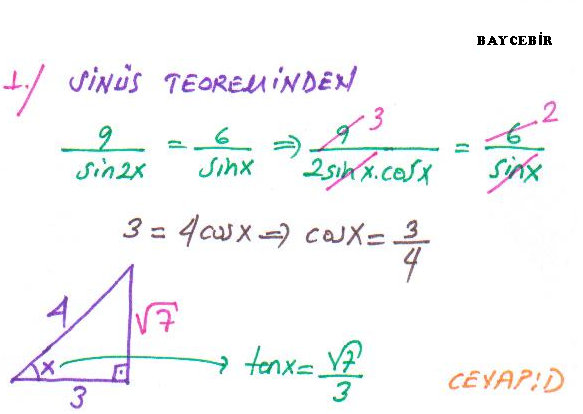 BAYCEBİR
1./ SİNÜS TEOREMİNDEN
9/sin2x = 6/sinx ⇒ 9/2sinx.cosx = 6/sinx
3 2
3 = 4cosx ⇒ cosx = 3/4
4 √7
x
3
tanx = √7/3
CEVAP:D